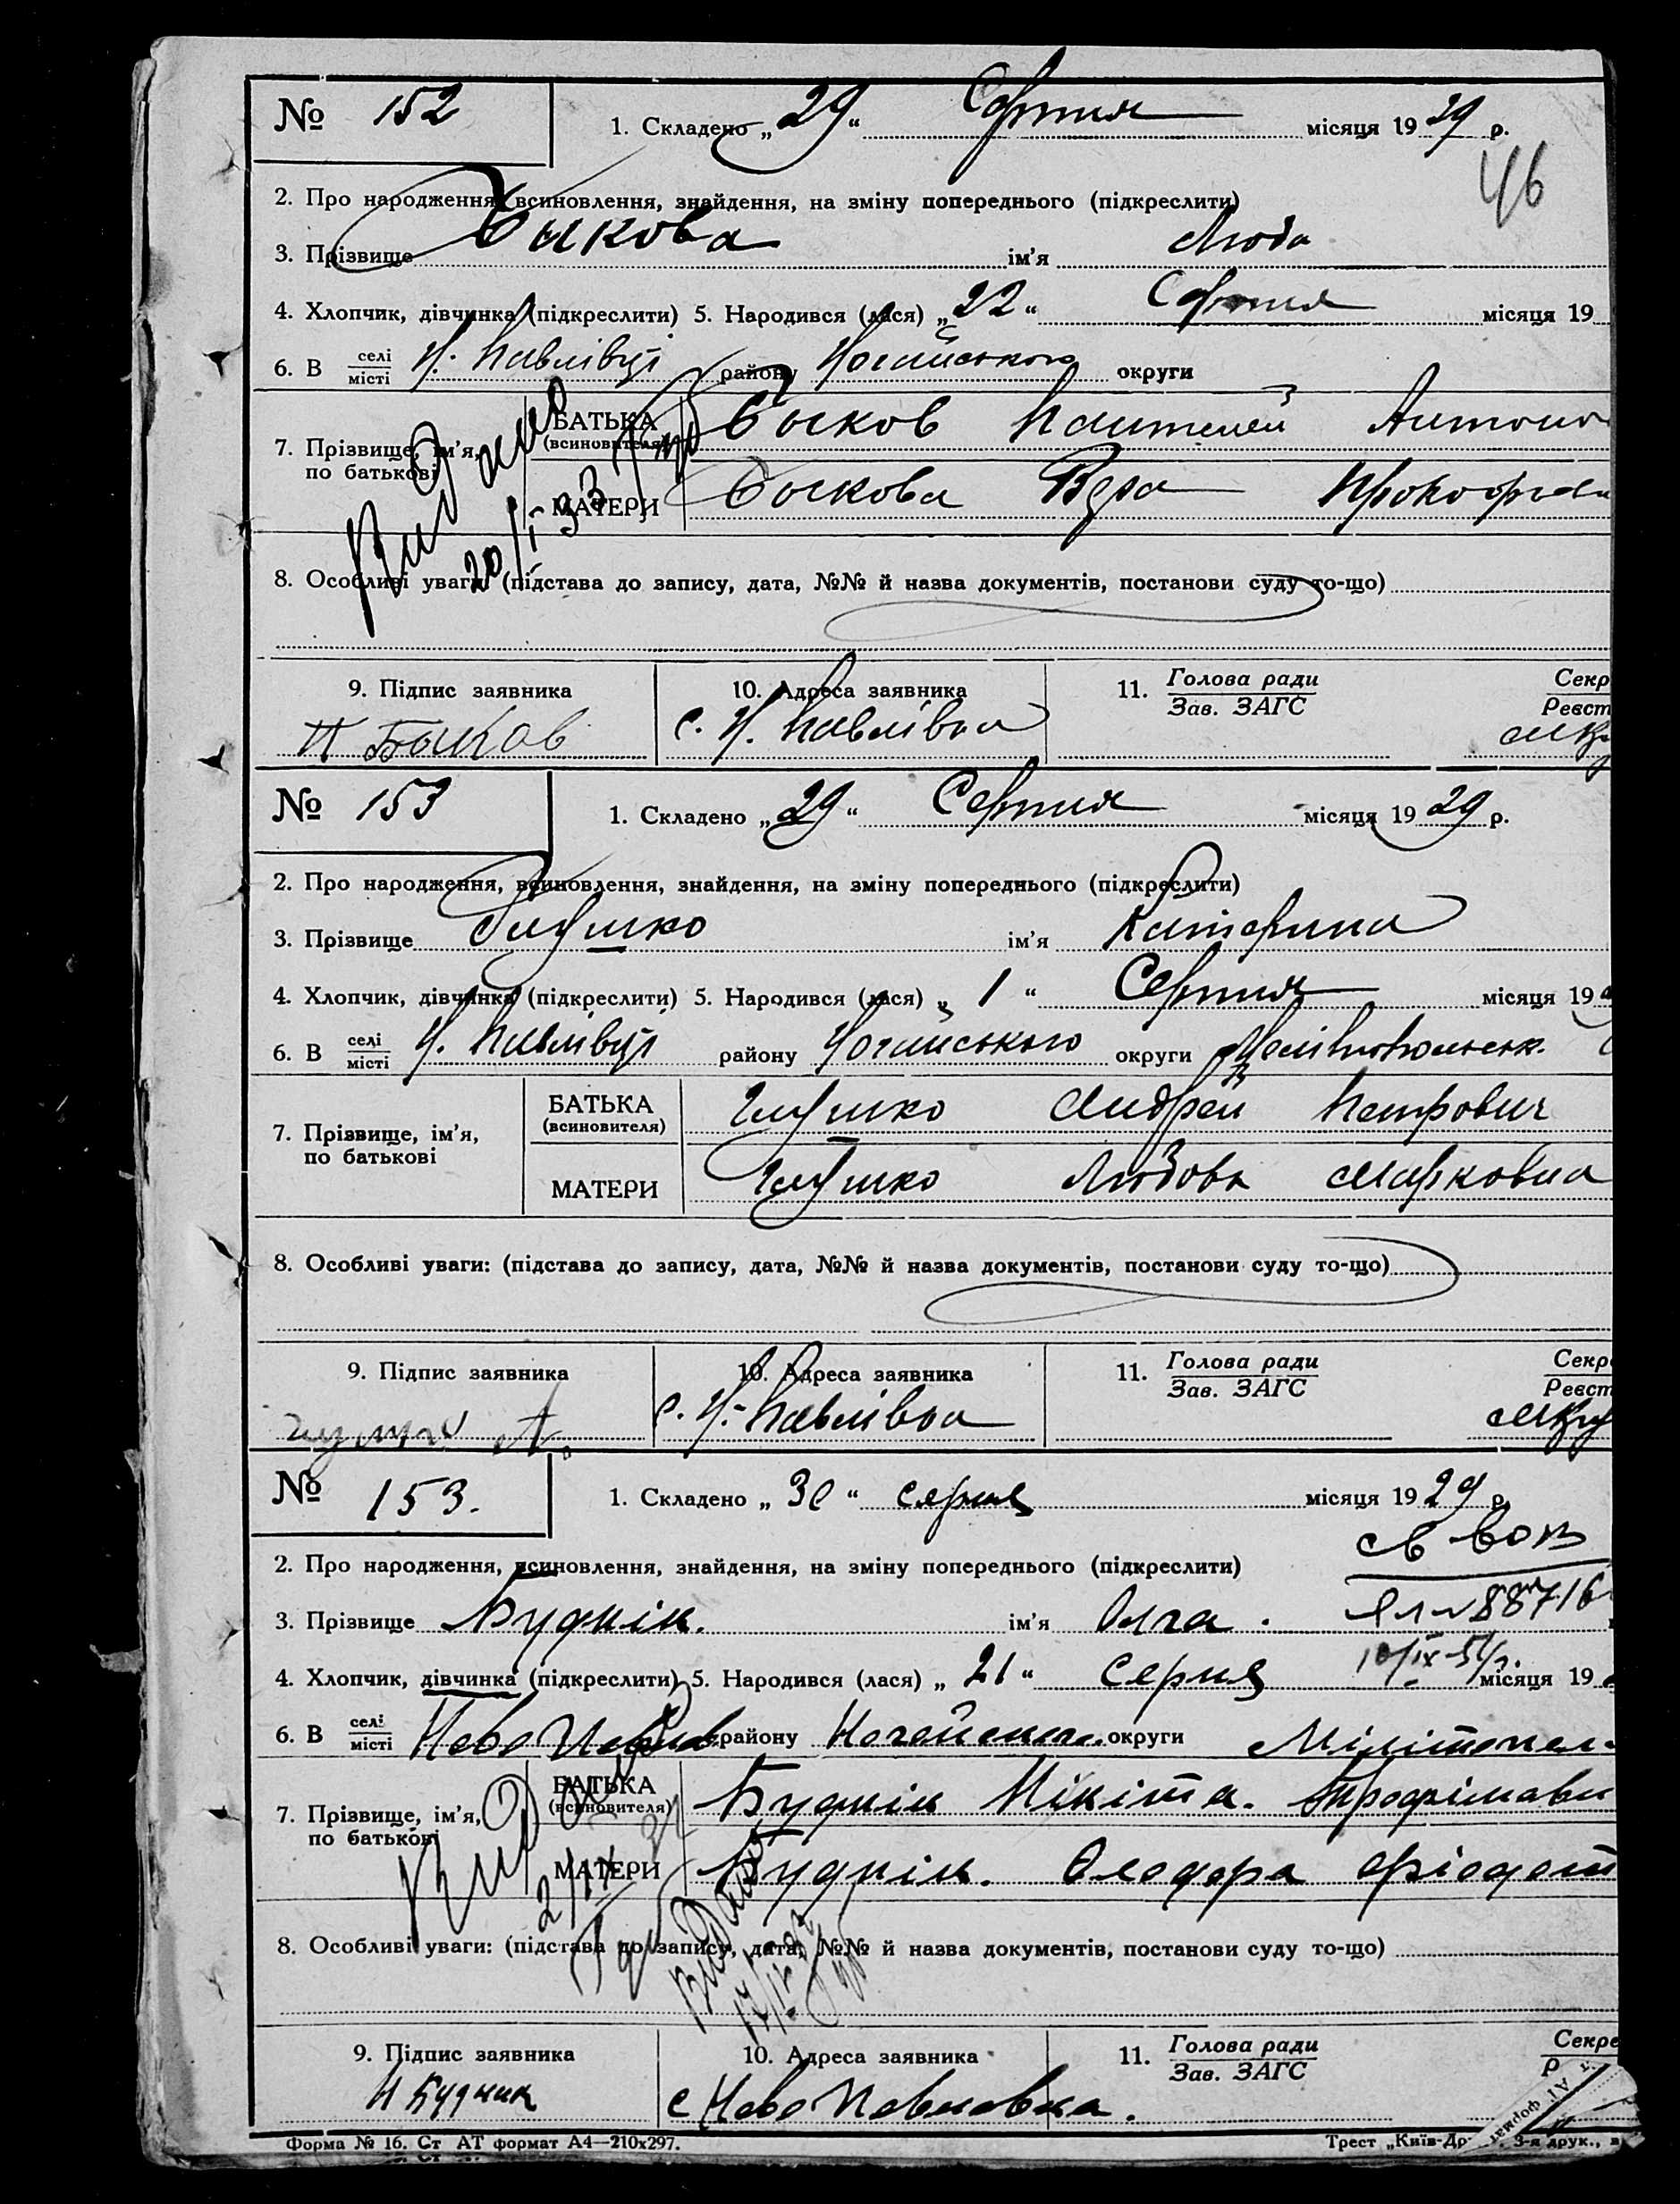 № 152
1. Складено „29“ Серпня місяця 1929 р.
46
2. Про народження, всиновлення, знайдення, на зміну попереднього (підкреслити)
3. Прізвище Быкова ім'я Люба
4. Хлопчик, дівчинка (підкреслити) 5. Народився (лася) „22“ Серпня місяця 19
6. В селі місті Н. Павлівці району Ногайського округи
7. Прізвище, ім'я, по батькові
БАТЬКА (всиновителя) Быков Пантелей Антоно
МАТЕРИ Быкова Вера
Видано
8. Особливі уваги: (підстава до запису, дата, №№ й назва документів, постанови суду то-що)
9. Підпис заявника 10. Адреса заявника 11. Голова ради Зав. ЗАГС Секр Реєст
П Быков с. Н. Павлівка
№ 153
1. Складено „29“ Серпня місяця 1929 р.
2. Про народження, всиновлення, знайдення, на зміну попереднього (підкреслити)
3. Прізвище Глушко ім'я Катерина
4. Хлопчик, дівчинка (підкреслити) 5. Народився (лася) „1“ Серпня місяця 19
6. В селі місті Н. Павлівці району Ногайського округи Мелітопольськ.
7. Прізвище, ім'я, по батькові
БАТЬКА (всиновителя) Глушко Андрей Петрович
МАТЕРИ Глушко Любовь Марковна
8. Особливі уваги: (підстава до запису, дата, №№ й назва документів, постанови суду то-що)
9. Підпис заявника 10. Адреса заявника 11. Голова ради Зав. ЗАГС Секре Реєст
с. Н-Павлівка
№ 153.
1. Складено „30“ серпня місяця 1929 р.
2. Про народження, всиновлення, знайдення, на зміну попереднього (підкреслити)
3. Прізвище Буднік. ім'я Олга.
4. Хлопчик, дівчинка (підкреслити) 5. Народився (лася) „21“ Серпня місяця 19
6. В селі місті району округи Мілітопол
7. Прізвище, ім'я, по батькові
БАТЬКА (всиновителя) Буднік Мікіта. Трофімави
МАТЕРИ Буднік.
Видано
Видано
8. Особливі уваги: (підстава до запису, дата, №№ й назва документів, постанови суду то-що)
9. Підпис заявника 10. Адреса заявника 11. Голова ради Зав. ЗАГС Секре
Н Будник с Ново Повловка.
Форма № 16. Ст АТ формат А4—210х297. Трест „Київ-Др 3-я друк., в